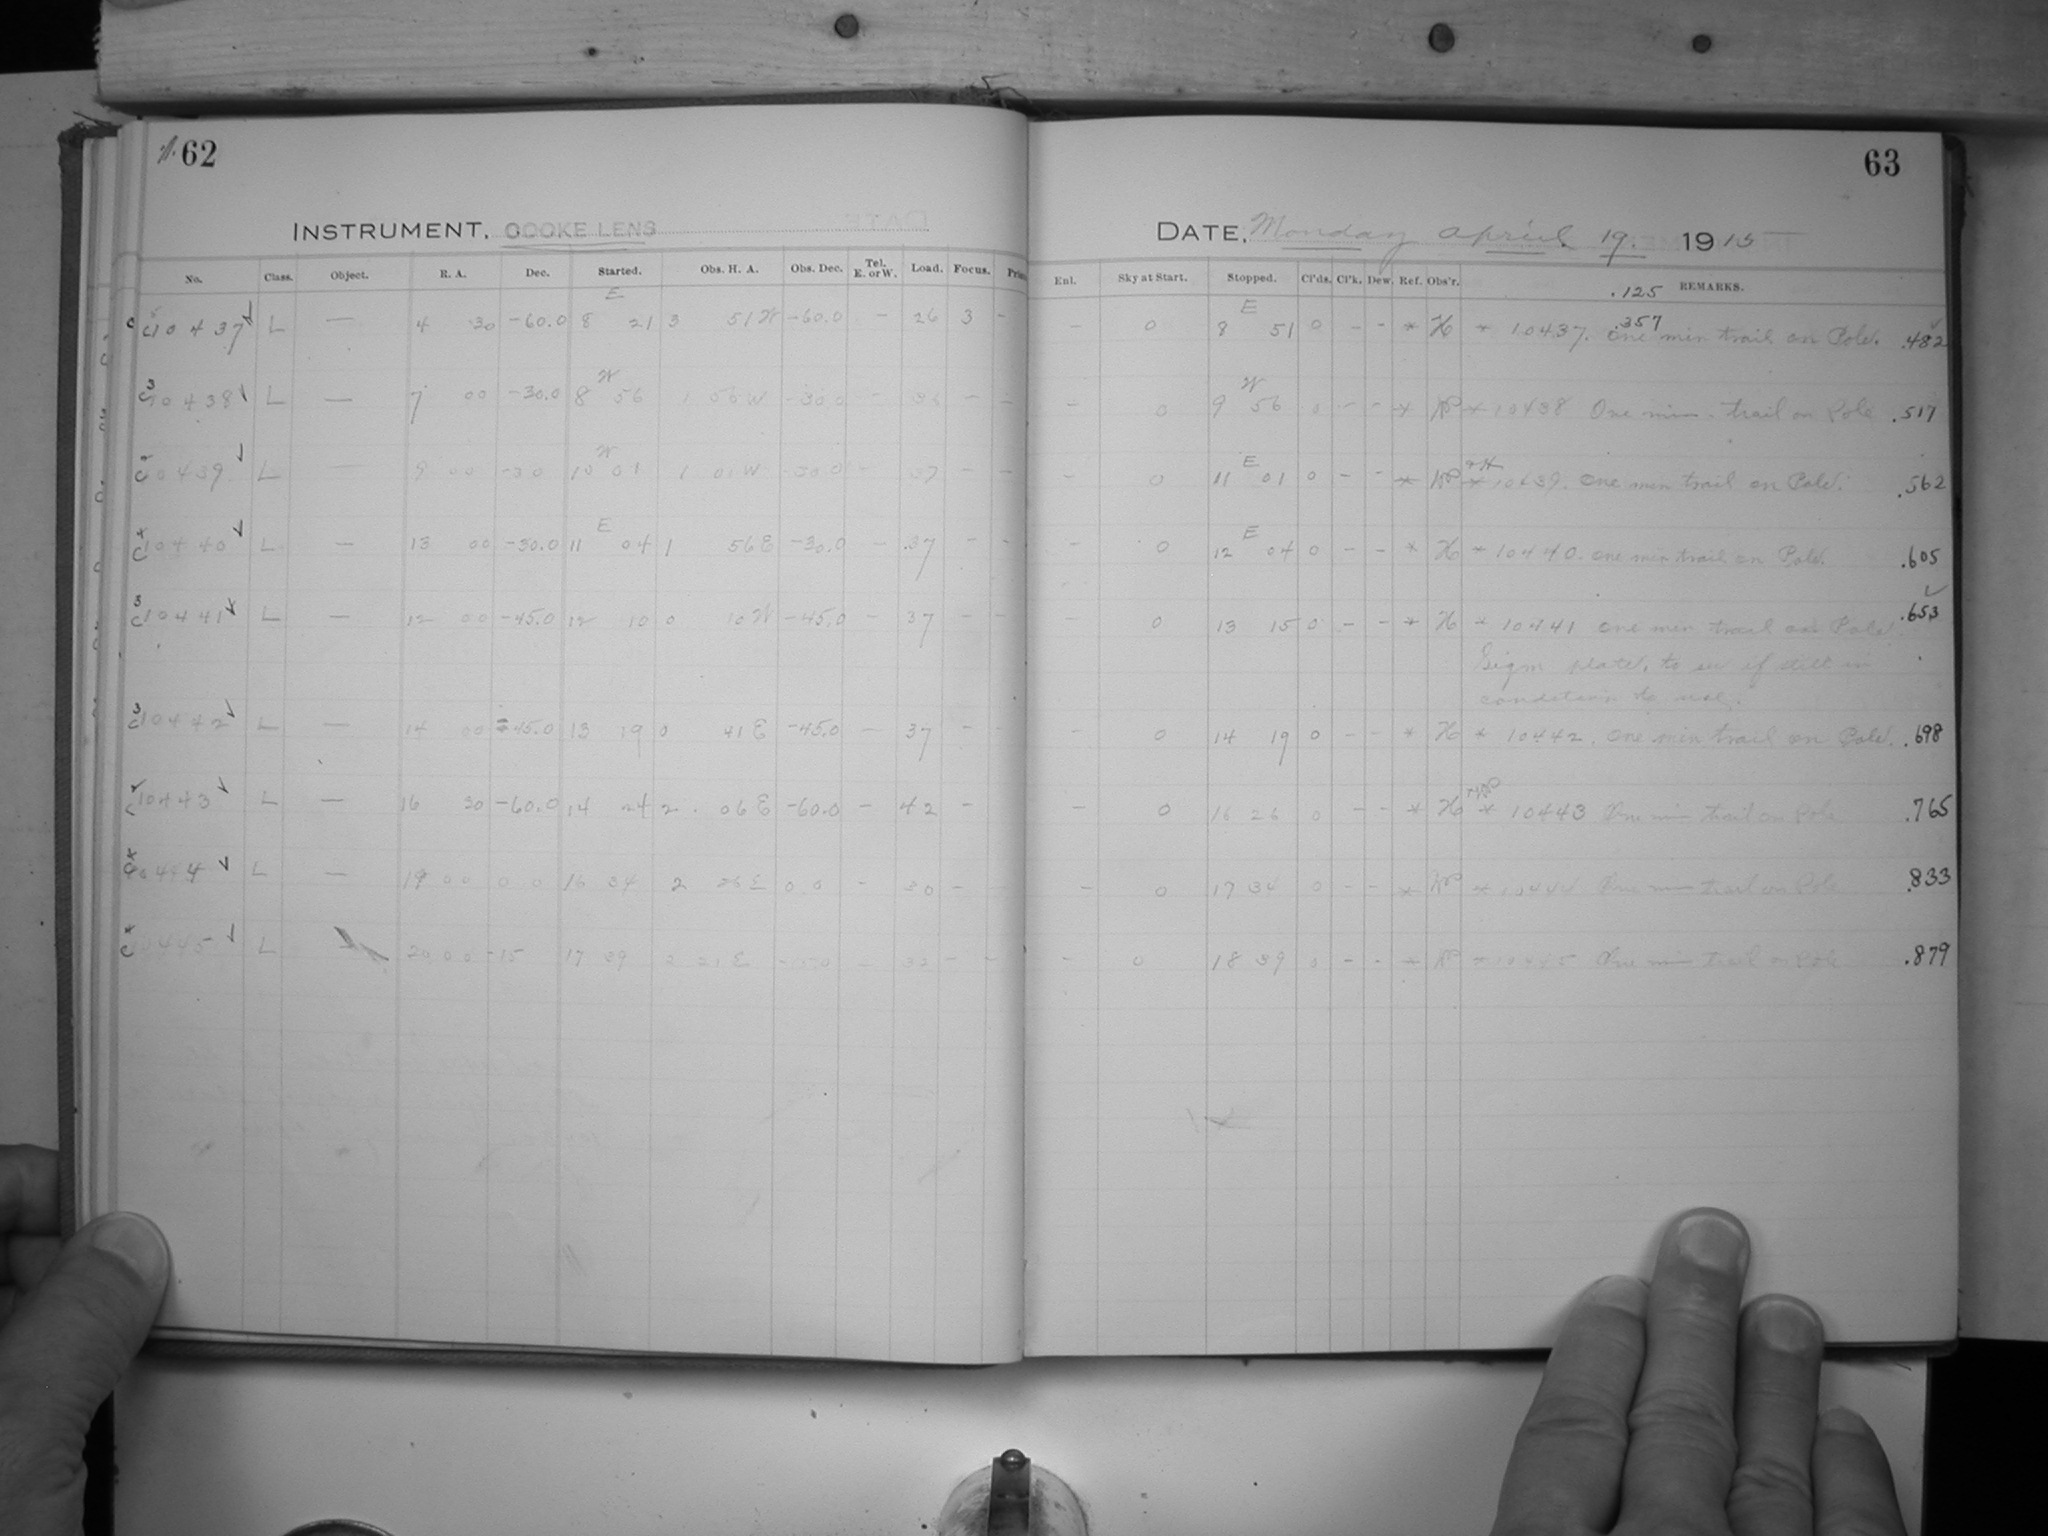 62
INSTRUMENT, COOKE LENS
No. Class. Object. R. A. Dec. Started. Obs. H. A. Obs. Dec. Tel. E. or W. Load. Focus.
E
C10437 L — 4 30 -60.0 8 21 3 51 W -60.0 - 26 3 -
W
3
C10438 L — 7 00 -30.0 8 56 1 56 W -30.0 - 36 - -
W
C10439 L — 9 00 -30 10 01 1 01 W -30.0 - 37 - -
E
C10440 L — 13 00 -30.0 11 04 1 56 E -30.0 - 37 - -
3
C10441 L — 12 00 -45.0 12 10 0 10 W -45.0 - 37 - -
3
C10442 L — 14 00 -45.0 13 19 0 41 E -45.0 - 37 - -
C10443 L — 16 30 -60.0 14 24 2 06 E -60.0 - 42 -
L — 19 00 0 0 16 34 2 26 E 0.0 - 30 -
L 20 00 -15 17 39 2 21 E - 32 - -
63
DATE, Monday April 19. 1915
Enl. Sky at Start. Stopped. Cl'ds. Cl'k. Dew. Ref. Obs'r. REMARKS.
.125
.357
E
- 0 8 51 0 - - * H * 10437. One min trail on Pole. .482
W
- 0 9 56 0 - - * * 10438 One min. trail on Pole .517
E
- 0 11 01 0 - - * * 10439. One min trail on Pole. .562
E
- 0 12 04 0 - - * H * 10440. One min trail on Pole. .605
- 0 13 15 0 - - * H * 10441 One min trail on Pole. .653
plate, to see if still in
condition to use.
- 0 14 19 0 - - * H * 10442. One min trail on Pole. .698
- 0 16 26 0 - - * H * 10443 One min trail on Pole .765
- 0 17 34 0 - - * * 10444 One min trail on Pole .833
- 0 18 39 0 - - * * 10445 One min trail on Pole .879